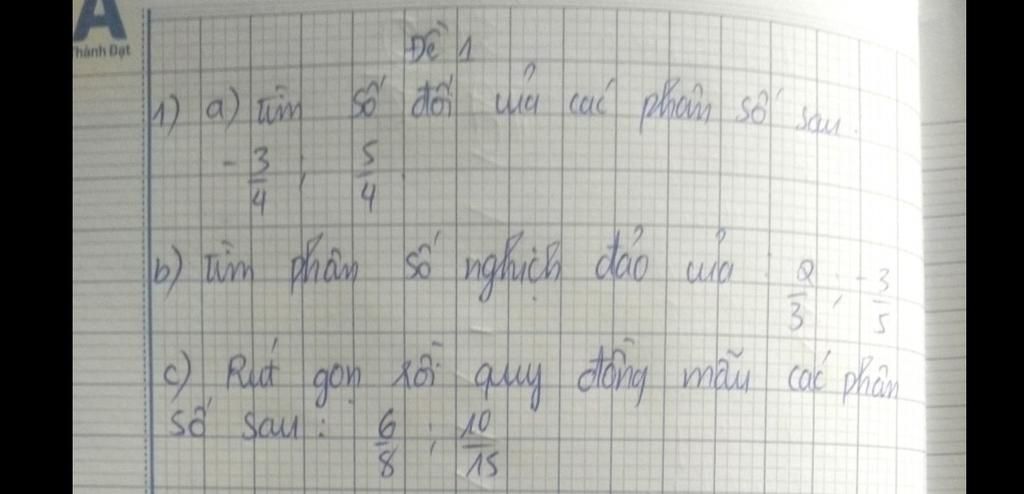 A
Thành Đạt
Đề 1
1) a) Tìm số đối của các phân số sau:
-3/4 ; 5/4
b) Tìm phân số nghịch đảo của : 2/3 ; -3/5
c) Rút gọn rồi quy đồng mẫu các phân
số sau : 6/8 ; 10/15